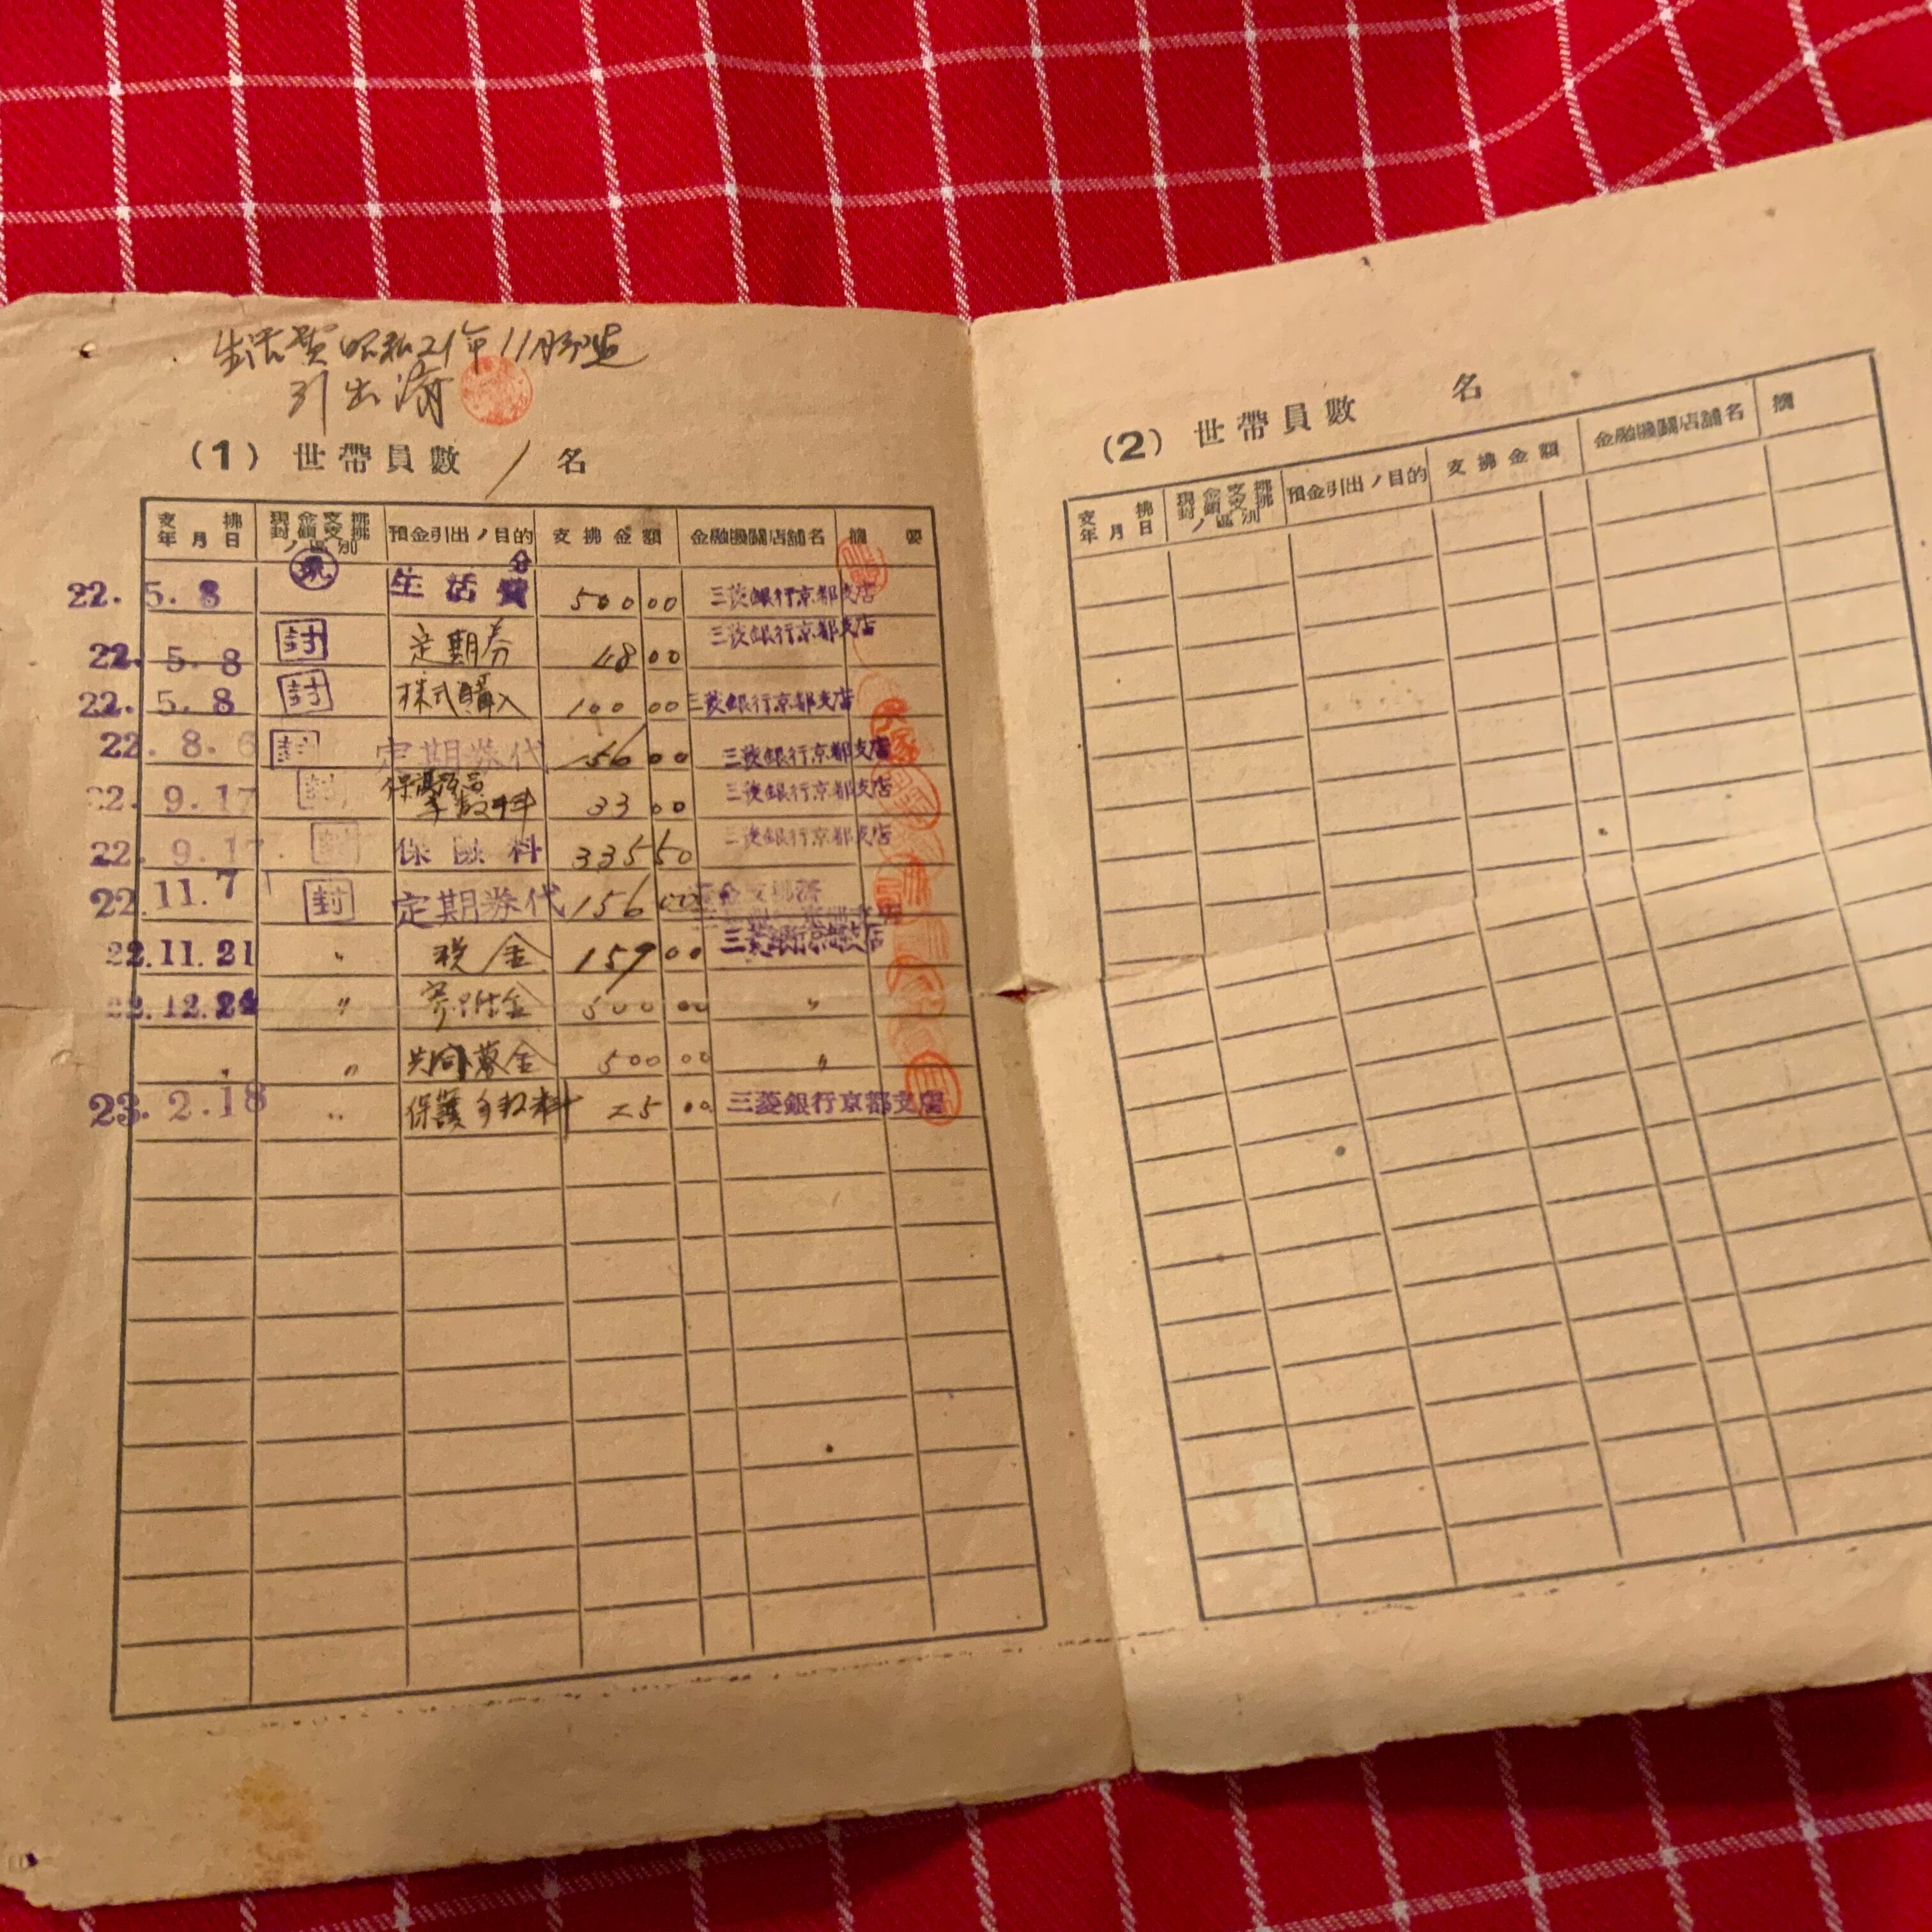 生活費昭和21年11月分迄
引出済
(1) 世帶員數 1 名
支拂年月日 現金支拂封鎖支拂ノ區別 預金引出ノ目的 支拂金額 金融機關店舖名 摘要
22. 5. 8 現 生活費分 500 00 三菱銀行京都支店
22. 5. 8 封 定期券 48 00 三菱銀行京都支店
22. 5. 8 封 株式購入 100 00 三菱銀行京都支店
22. 8. 6 封 定期券代 156 00 三菱銀行京都支店
22. 9. 17 封 保護預品手数料 33 00 三菱銀行京都支店
22. 9. 17 封 保險料 335 50 三菱銀行京都支店
22. 11. 7 封 定期券代 156 00
22. 11. 21 〃 税金 159 00 三菱銀行京都支店
22. 12. 24 〃 寄附金 500 00 〃
〃 共同募金 500 00 〃
23. 2. 18 〃 保護手数料 25 00 三菱銀行京都支店
(2) 世帶員數 名
支拂年月日 現金支拂封鎖支拂ノ區別 預金引出ノ目的 支拂金額 金融機關店舖名 摘